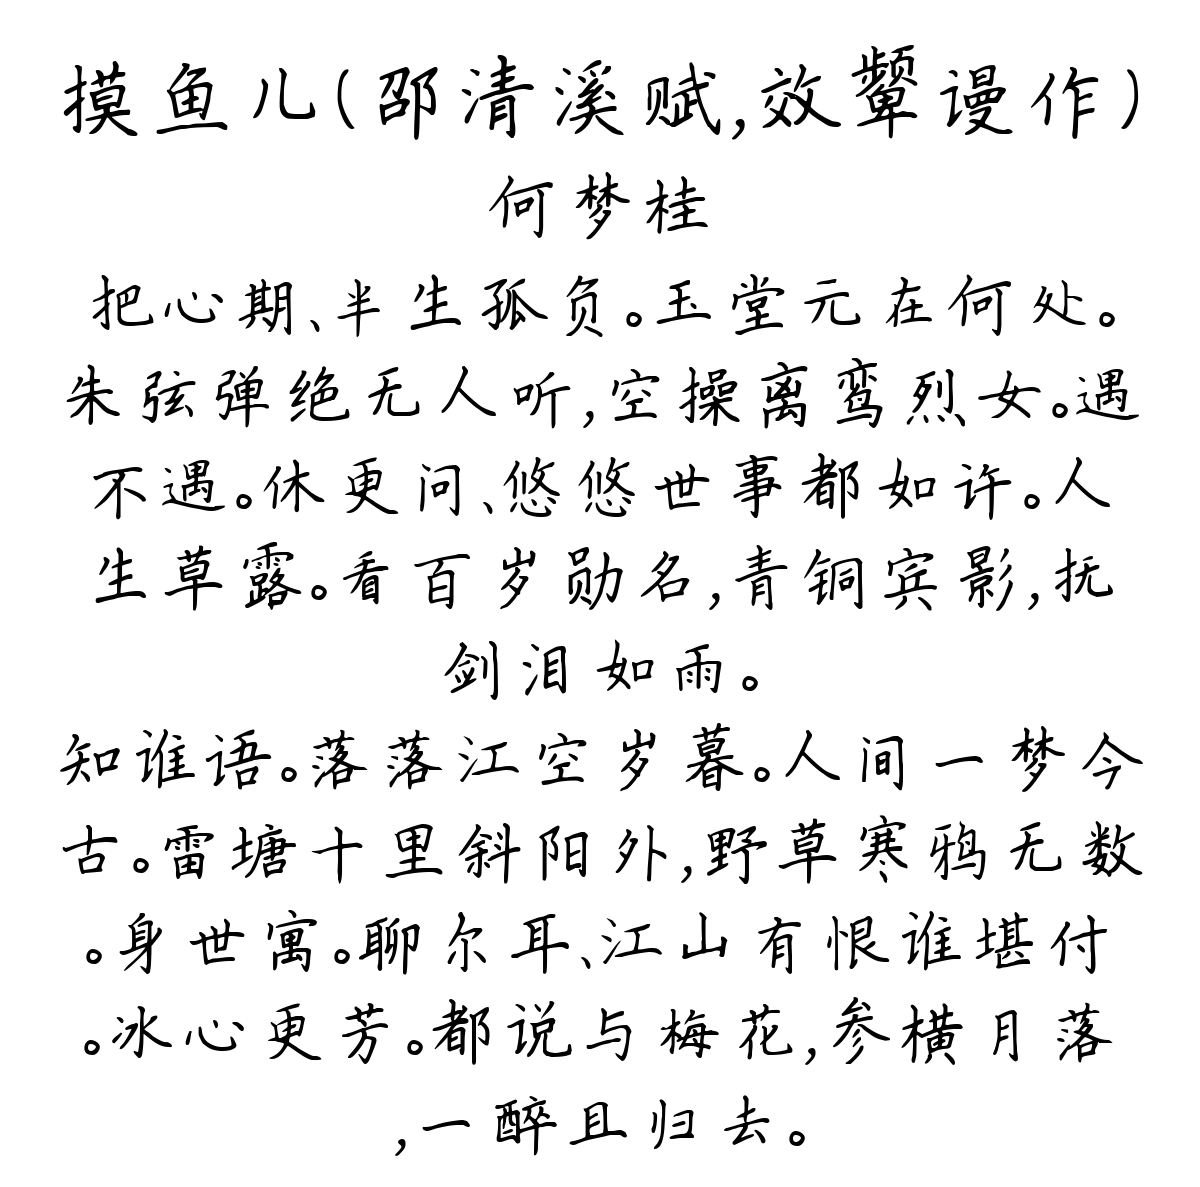 摸鱼儿(邵清溪赋,效颦谩作)
何梦桂
把心期、半生孤负。玉堂元在何处。
朱弦弹绝无人听,空操离鸾烈女。遇
不遇。休更问、悠悠世事都如许。人
生草露。看百岁勋名,青铜宾影,抚
剑泪如雨。
知谁语。落落江空岁暮。人间一梦今
古。雷塘十里斜阳外,野草寒鸦无数
。身世寓。聊尔耳、江山有恨谁堪付
。冰心更芳。都说与梅花,参横月落
,一醉且归去。